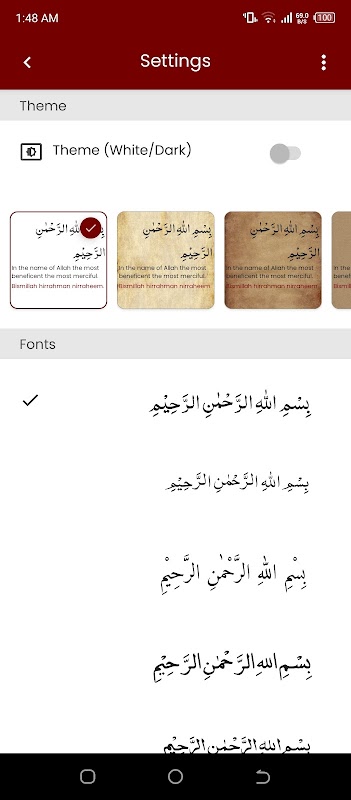 1:48 AM
69.0
B/S
100
Settings
Theme
Theme (White/Dark)
الرَّحِيْمِ
In the name of Allah the most
beneficent the most merciful.
Bismillah hirrahman nirraheem.
بِسْمِ اللهِ الرَّحْمٰنِ
الرَّحِيْمِ
In the name of Allah the most
beneficent the most merciful
Bismillah hirrahman nirraheem
بِسْمِ اللهِ الرَّحْمٰنِ
الرَّحِيْمِ
In the name of Allah the most
beneficent the most merciful
Bismillah hirrahman nirraheem
Fonts
بِسْمِ اللهِ الرَّحْمٰنِ الرَّحِيْمِ
بِسْمِ اللهِ الرَّحْمٰنِ الرَّحِيْمِ
بِسْمِ اللهِ الرَّحْمٰنِ الرَّحِيْمِ
بِسْمِ اللهِ الرَّحْمٰنِ الرَّحِيْمِ
بِسْمِ اللهِ الرَّحْمٰنِ الرَّحِيْمِ